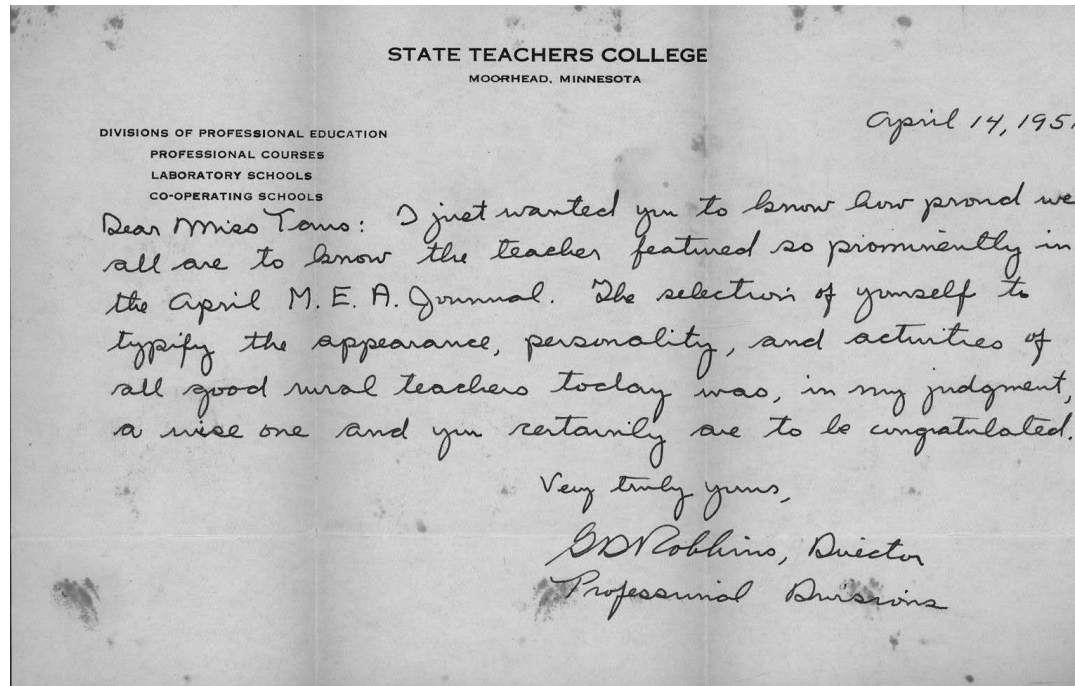 STATE TEACHERS COLLEGE
MOORHEAD, MINNESOTA
April 14, 195
DIVISIONS OF PROFESSIONAL EDUCATION
PROFESSIONAL COURSES
LABORATORY SCHOOLS
CO-OPERATING SCHOOLS
Dear Miss : I just wanted you to know how proud we
all are to know the teacher featured so prominently in
the April M. E. A. Journal. The selection of yourself to
typify the appearance, personality, and activities of
all good rural teachers today was, in my judgment,
a wise one and you certainly are to be congratulated.
Very truly yours,
Robbins, Director
Professional Divisions